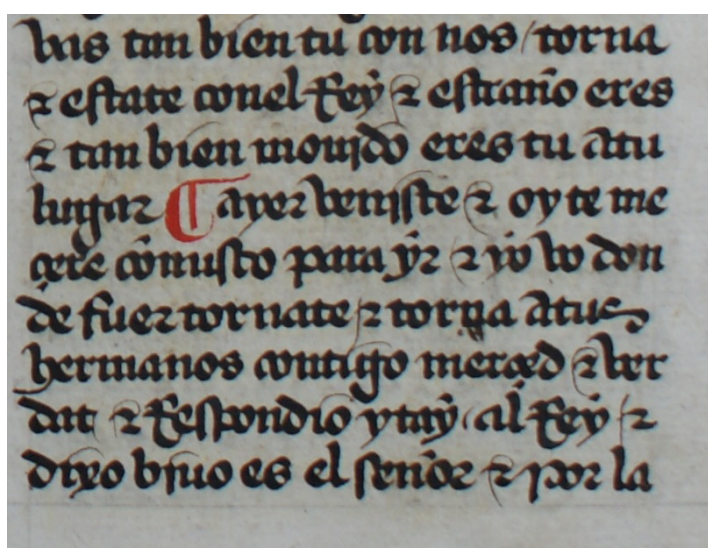 vas tan bien tu con nos torna
& estate conel Rey & estraño eres
& tan bien mouido eres tu atu
lugar ¶ ayer veniste & oy te me
çere cōnusco para yr & yo vo don
de fuer tornate & torna atus
hermanos contigo merçed & ver
dat & Respondio ytay al Rey &
dixo biuo es el señor & por la